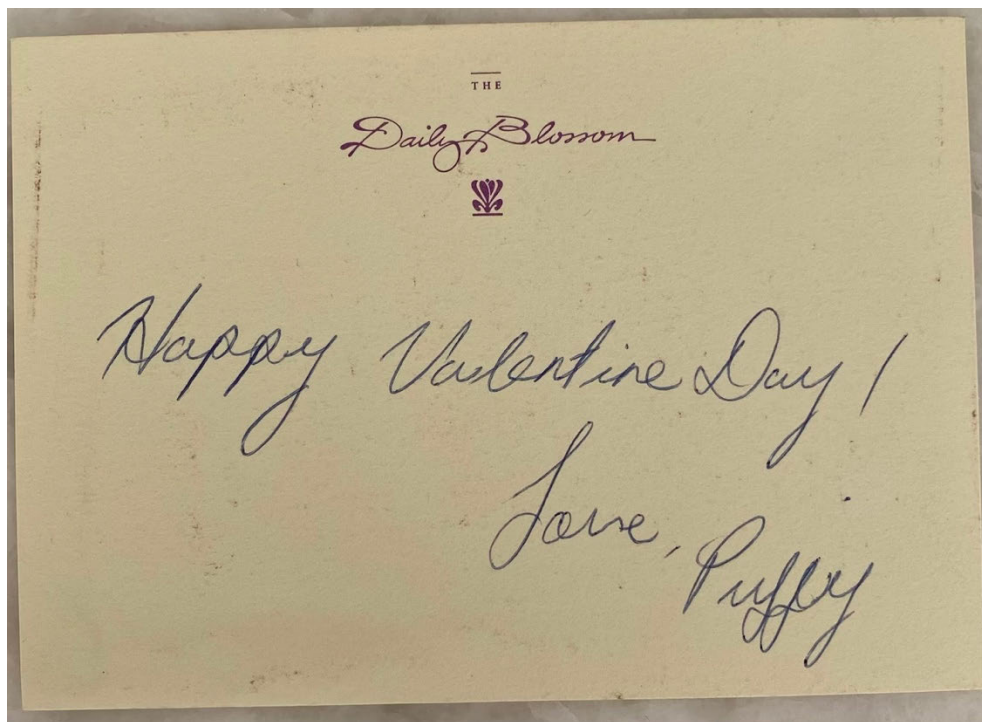 THE
Daily Blossom
Happy Valentine Day!
Love, Puffy